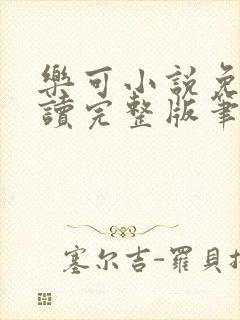 樂可小説免
讀完整版筆
塞尔吉-羅貝